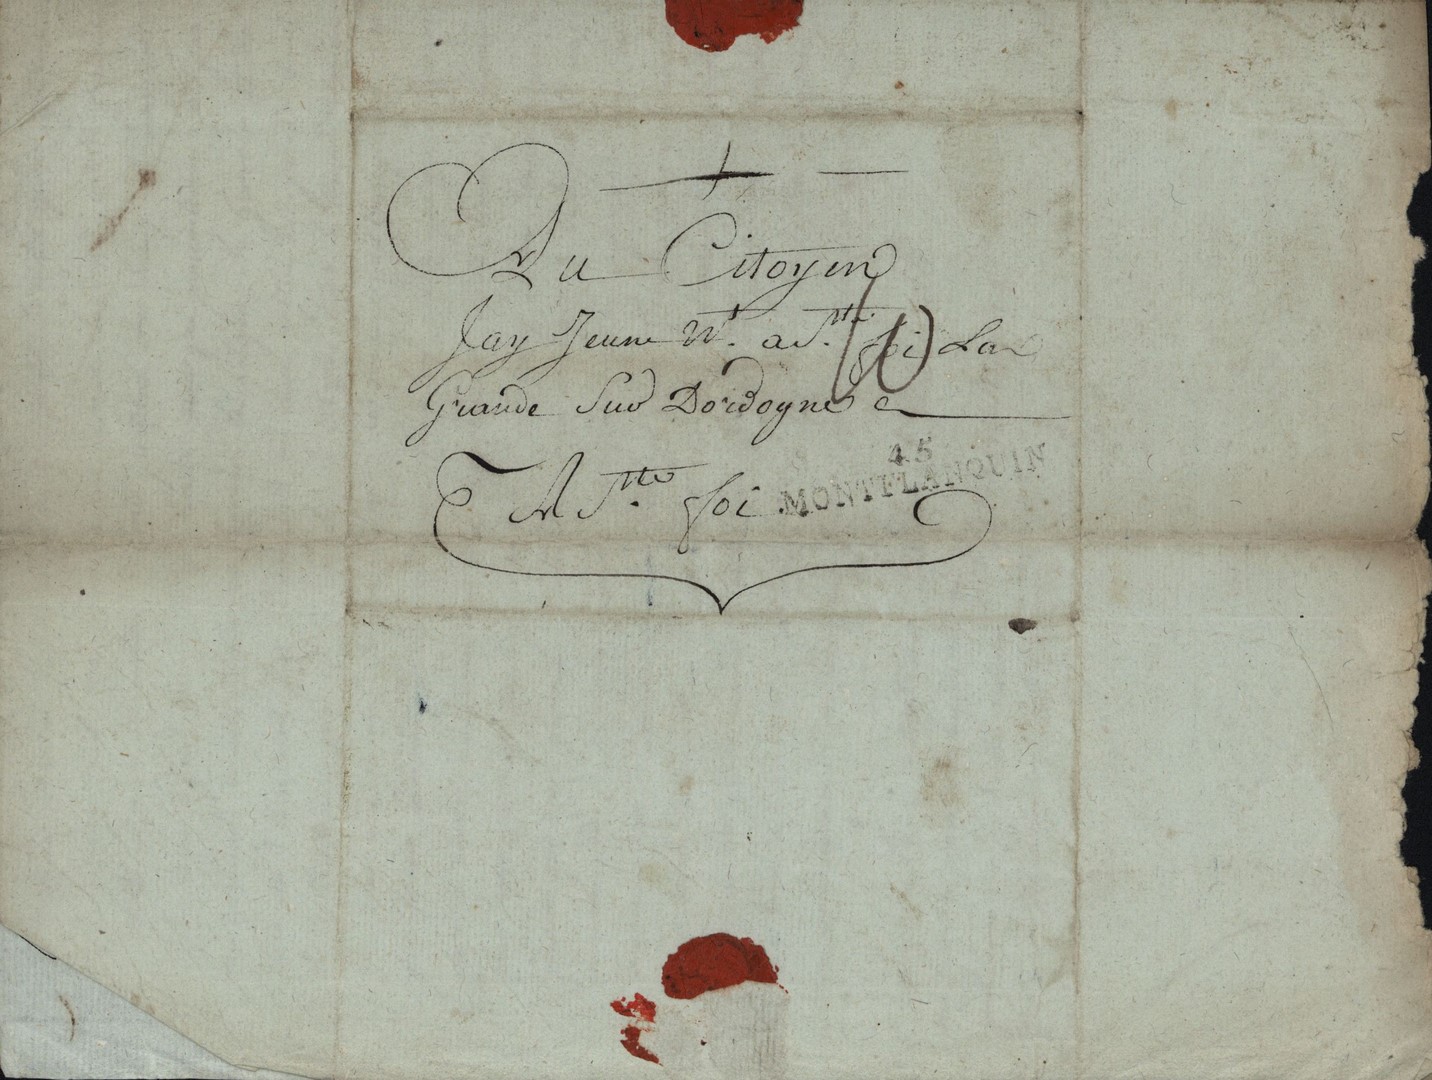 Au Citoyen
Jay Jeune N.t a S.te foi La
Grande Sur Dordogne
A S.te foi
45
MONTFLANQUIN